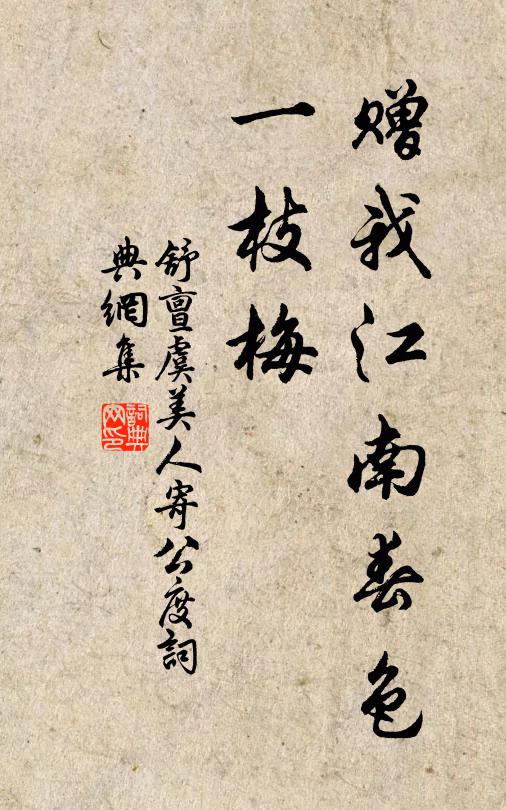 赠我江南春色
一枝梅
舒亶虞美人寄公度詞
典網集
詞典
网印